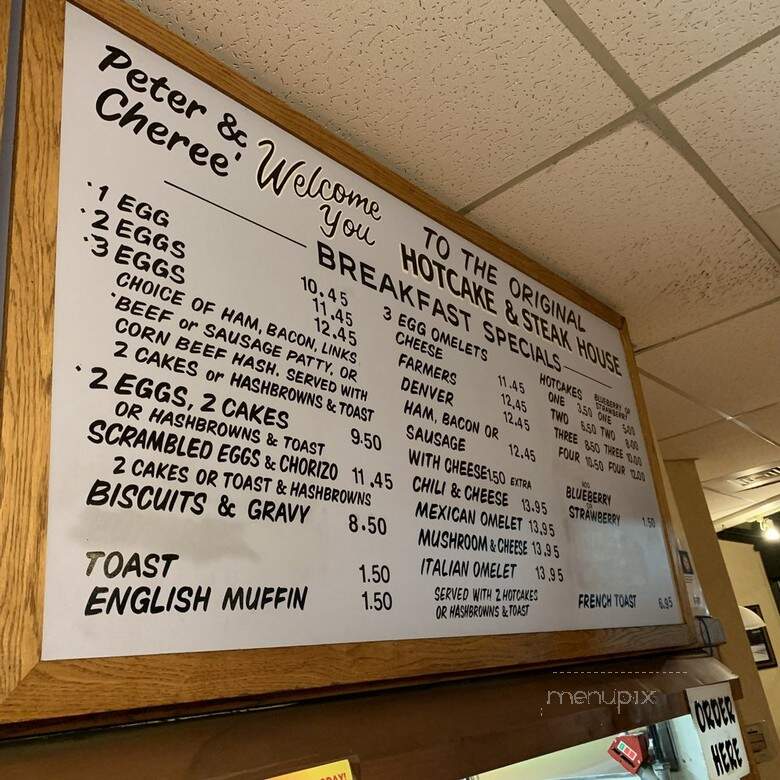 Peter & Cheree'
Welcome You
TO THE ORIGINAL
HOTCAKE & STEAK HOUSE
BREAKFAST SPECIALS
1 EGG 10.45
2 EGGS 11.45
3 EGGS 12.45
CHOICE OF HAM, BACON, LINKS
BEEF or SAUSAGE PATTY, OR
CORN BEEF HASH. SERVED WITH
2 CAKES or HASHBROWNS & TOAST
2 EGGS, 2 CAKES 9.50
OR HASHBROWNS & TOAST
SCRAMBLED EGGS & CHORIZO 11.45
2 CAKES OR TOAST & HASHBROWNS
BISCUITS & GRAVY 8.50
TOAST 1.50
ENGLISH MUFFIN 1.50
3 EGG OMELETS
CHEESE 11.45
FARMERS 12.45
DENVER 12.45
HAM, BACON OR
SAUSAGE 12.45
WITH CHEESE 1.50 EXTRA
CHILI & CHEESE 13.95
MEXICAN OMELET 13.95
MUSHROOM & CHEESE 13.95
ITALIAN OMELET 13.95
SERVED WITH 2 HOTCAKES
OR HASHBROWNS & TOAST
HOTCAKES BLUEBERRY or STRAWBERRY
ONE 3.50 ONE 5.00
TWO 6.50 TWO 8.00
THREE 8.50 THREE 10.00
FOUR 10.50 FOUR 12.00
ADD
BLUEBERRY
OR
STRAWBERRY 1.50
FRENCH TOAST 6.95
menupix
ORDER
HERE